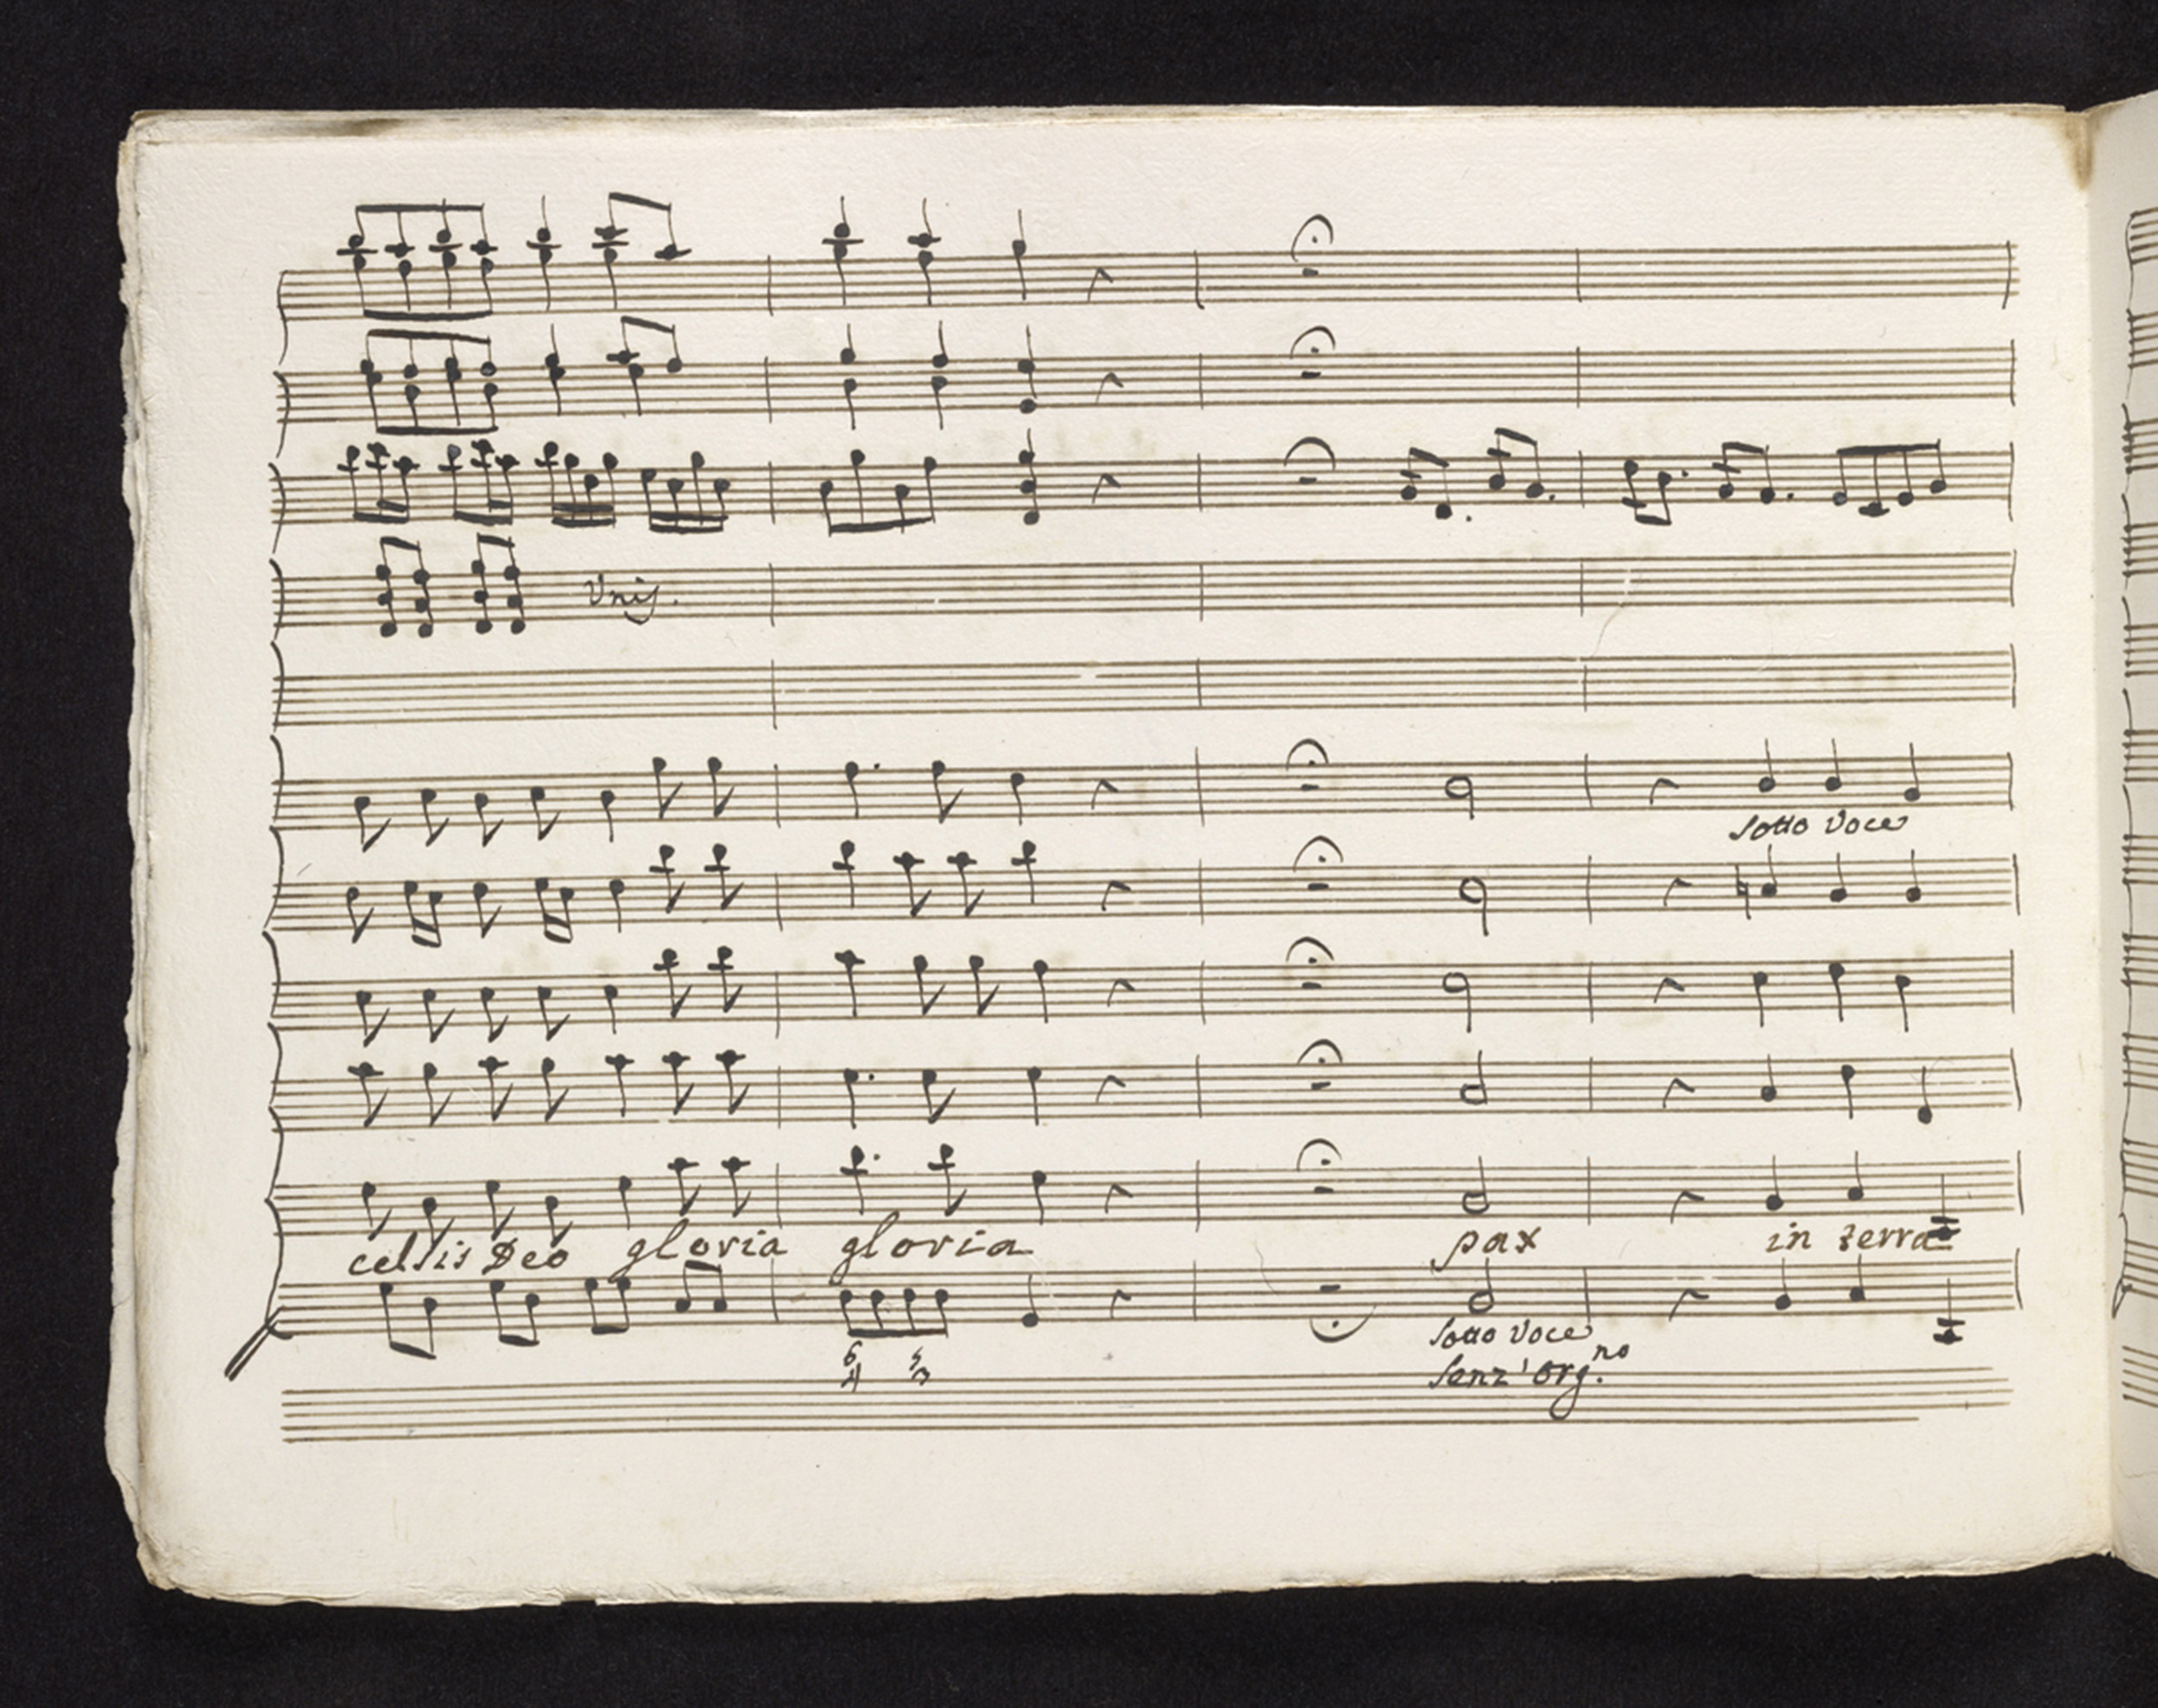 Unis.
Sotto Voce
celsis Deo gloria gloria pax in terra
Sotto Voce
6 5
4 3
Senz'Org.no